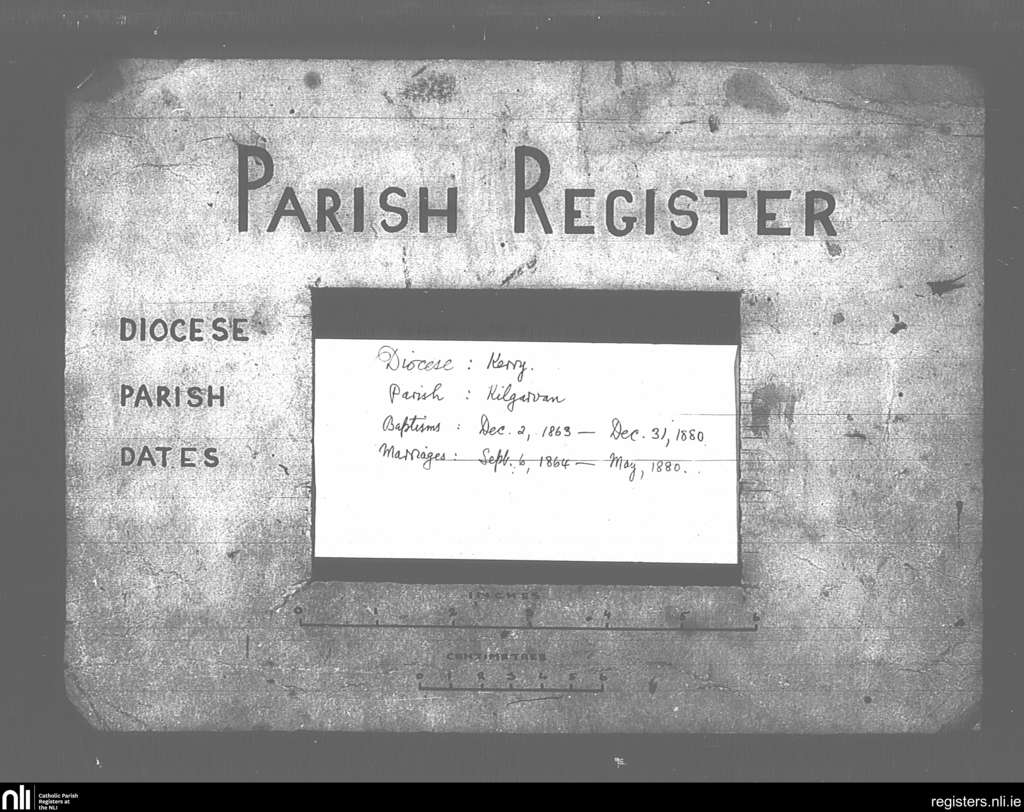 PARISH REGISTER
DIOCESE
PARISH
DATES
Diocese : Kerry.
Parish : Kilgarvan
Baptisms : Dec. 2, 1863 — Dec. 31, 1880
Marriages : Sept. 6, 1864 — May, 1880.
INCHES
0 1 2 3 4 5 6
CENTIMETRES
0 1 2 3 4 5 6
nli
Catholic Parish
Registers at
the NLI
registers.nli.ie